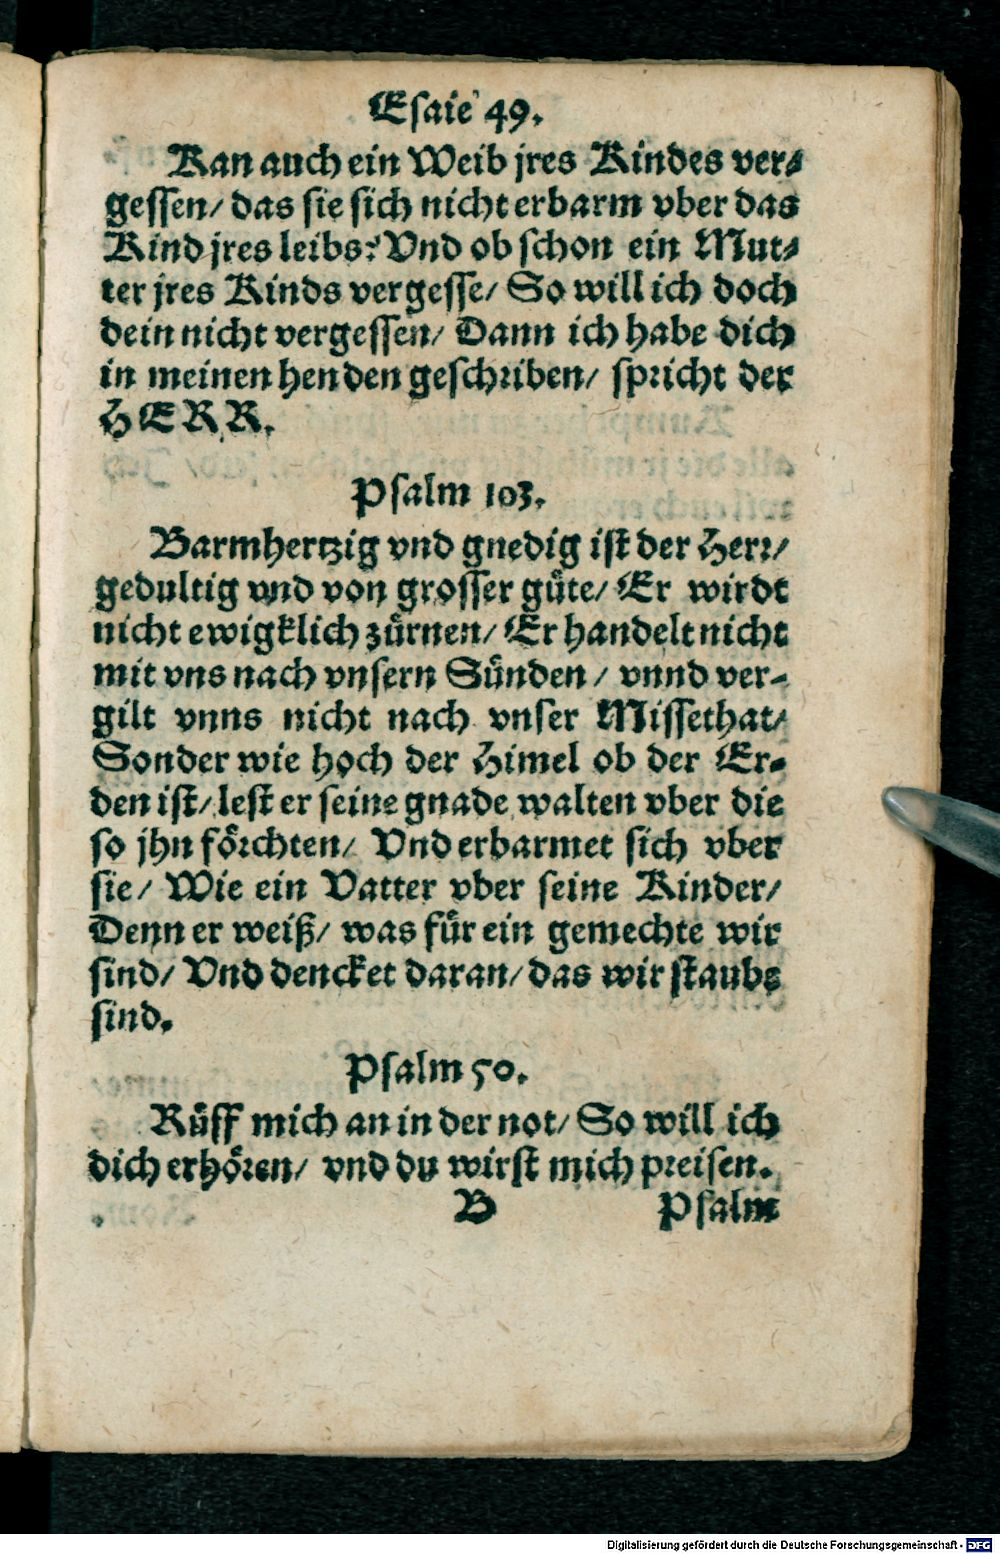 Esaie 49.
Kan auch ein Weib jres Kindes ver-
gessen/ das sie sich nicht erbarm vber das
Kind jres leibs? Vnd ob schon ein Mut-
ter jres Kinds vergesse/ So will ich doch
dein nicht vergessen/ Dann ich habe dich
in meinen henden geschriben/ spricht der
HERR.
Psalm 103.
Barmhertzig vnd gnedig ist der Herr/
gedultig vnd von grosser güte/ Er wirdt
nicht ewigklich zürnen/ Er handelt nicht
mit vns nach vnsern Sünden/ vnnd ver-
gilt vnns nicht nach vnser Missethat/
Sonder wie hoch der Himel ob der Er-
den ist/ lest er seine gnade walten vber die
so jhn förchten/ Vnd erbarmet sich vber
sie/ Wie ein Vatter vber seine Kinder/
Denn er weiß/ was für ein gemechte wir
sind/ Vnd dencket daran/ das wir staube
sind.
Psalm 50.
Rüff mich an in der not/ So will ich
dich erhören/ vnd du wirst mich preisen.
B Psalm
Digitalisierung gefördert durch die Deutsche Forschungsgemeinschaft - DFG